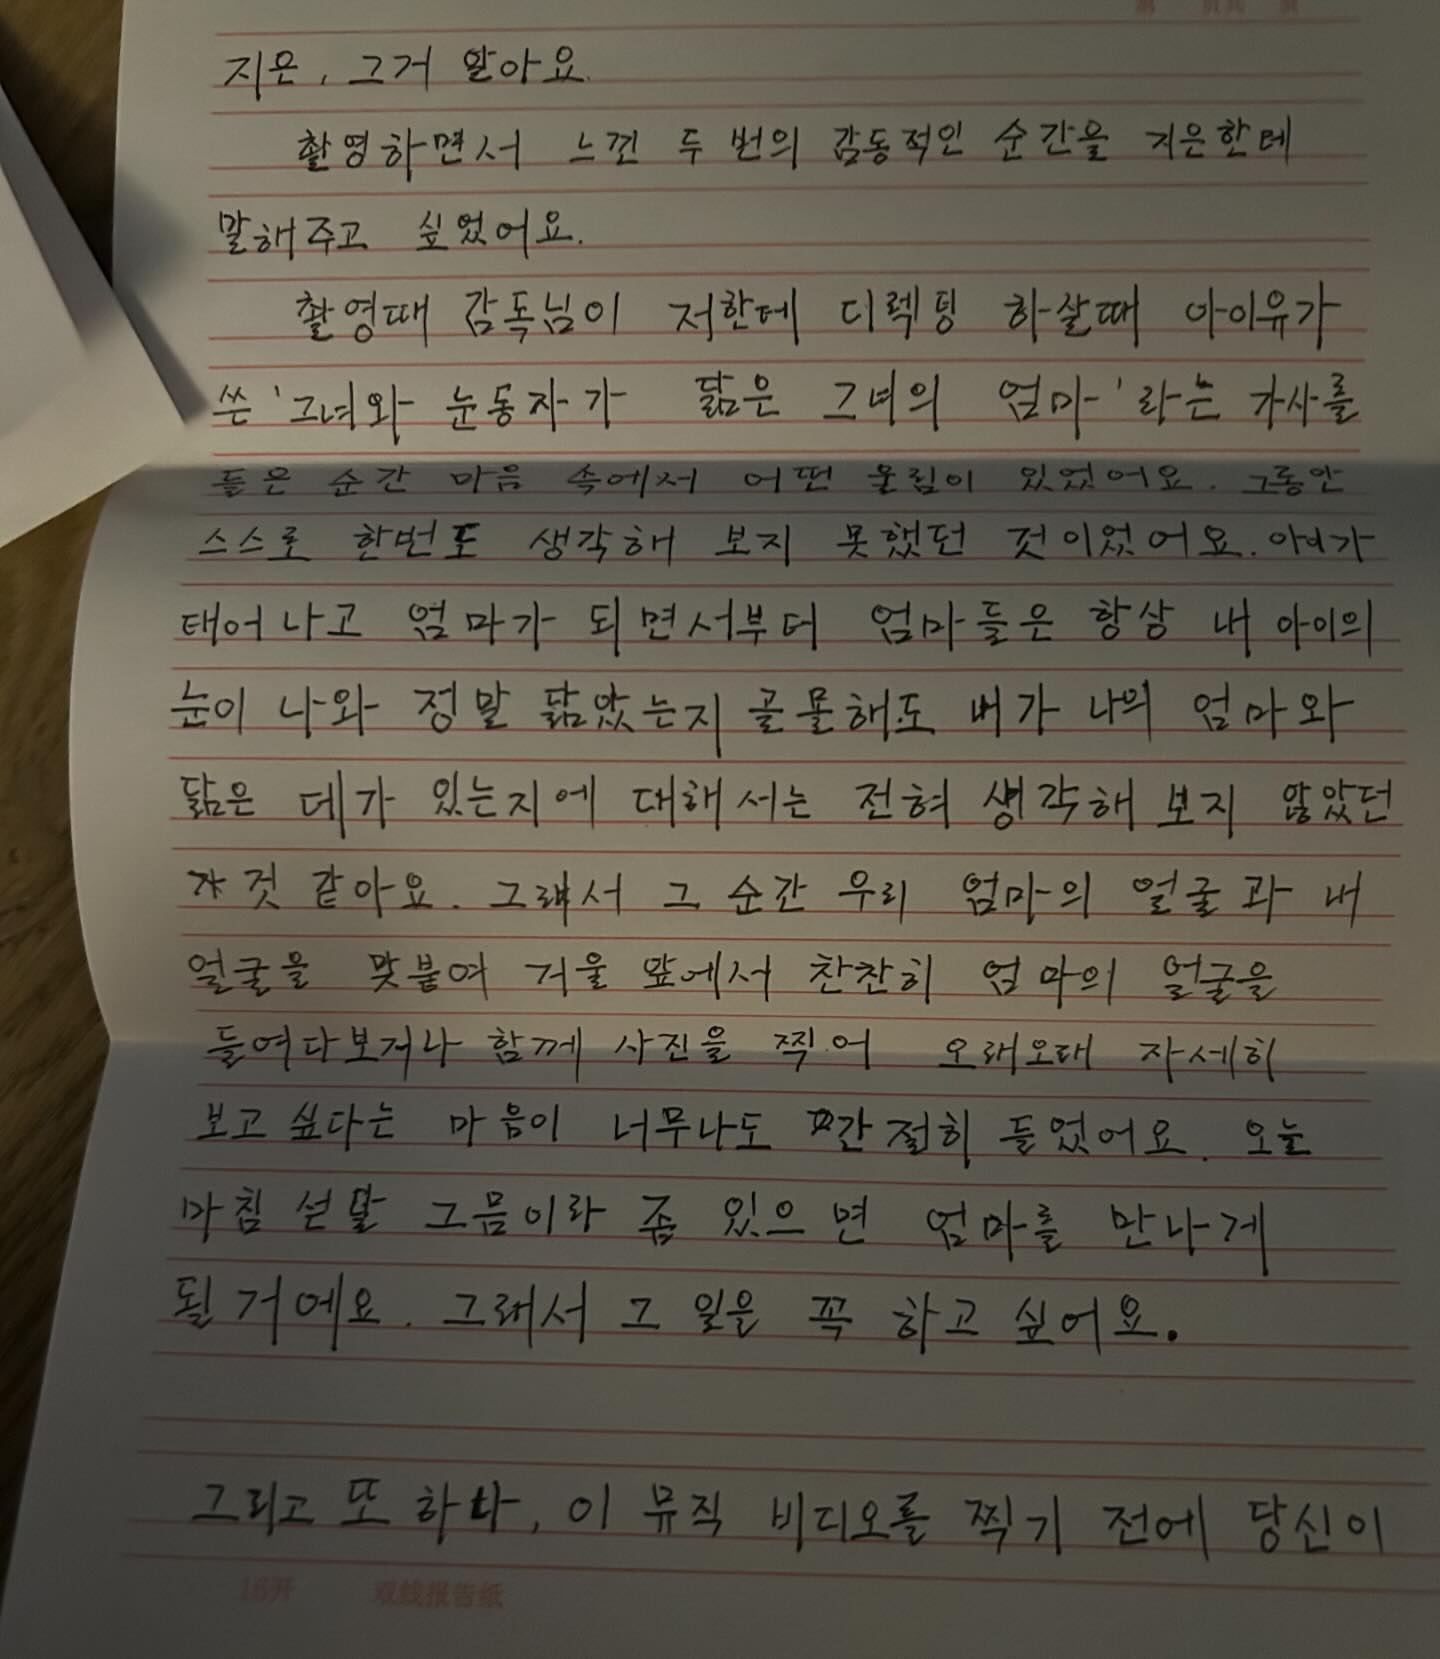 지은, 그거 알아요.
촬영하면서 느낀 두 번의 감동적인 순간을 지은한테
말해주고 싶었어요.
촬영때 감독님이 저한테 디렉팅 하살때 아이유가
쓴 '그녀와 눈동자가 닮은 그녀의 엄마'라는 가사를
들은 순간 마음 속에서 어떤 울림이 있었어요. 그동안
스스로 한번도 생각해 보지 못했던 것이었어요. 아이가
태어나고 엄마가 되면서부터 엄마들은 항상 내 아이의
눈이 나와 정말 닮았는지 골몰해도 내가 나의 엄마와
닮은 데가 있는지에 대해서는 전혀 생각해 보지 않았던
것 같아요. 그래서 그 순간 우리 엄마의 얼굴과 내
얼굴을 맞붙여 거울 앞에서 찬찬히 엄마의 얼굴을
들여다보거나 함께 사진을 찍어 오래오래 자세히
보고 싶다는 마음이 너무나도 간절히 들었어요. 오늘
마침 섣달 그믐이라 좀 있으면 엄마를 만나게
될 거에요. 그래서 그 일을 꼭 하고 싶어요.
그리고 또 하나, 이 뮤직 비디오를 찍기 전에 당신이
16开 双线报告纸